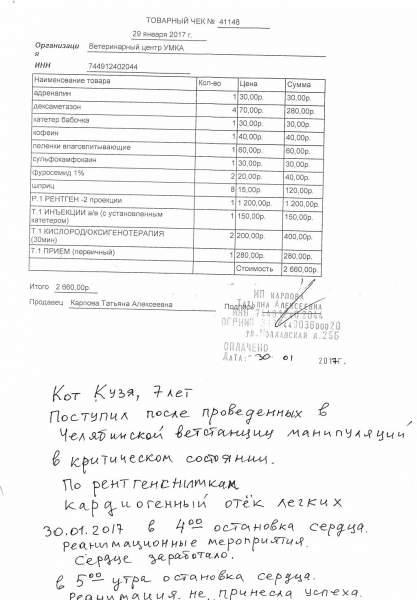 ТОВАРНЫЙ ЧЕК № 41148
29 января 2017 г.
Организация Ветеринарный центр УМКА
ИНН 744912402044
Наименование товара Кол-во Цена Сумма
адреналин 1 30,00р. 30,00р.
дексаметазон 4 70,00р. 280,00р.
катетер бабочка 1 30,00р. 30,00р.
кофеин 1 40,00р. 40,00р.
пеленки влаговпитывающие 1 60,00р. 60,00р.
сульфокамфокаин 1 30,00р. 30,00р.
фуросемид 1% 2 20,00р. 40,00р.
шприц 8 15,00р. 120,00р.
Р.1 РЕНТГЕН -2 проекции 1 1 200,00р. 1 200,00р.
Т.1 ИНЪЕКЦИИ в/в (с установленным катетером) 1 150,00р. 150,00р.
Т.1 КИСЛОРОД/ОКСИГЕНОТЕРАПИЯ (30мин) 2 200,00р. 400,00р.
Т.1 ПРИЕМ (первичный) 1 280,00р. 280,00р.
Стоимость 2 660,00р.
Итого 2 660,00р.
Продавец Карпова Татьяна Алексеевна Подпись
ИП КАРПОВА
ТАТЬЯНА АЛЕКСЕЕВНА
ИНН
ОГРНИП
А.25Б
ОПЛАЧЕНО
ДАТА: 30 01 2017г.
Кот Кузя, 7 лет
Поступил после проведенных в
Челябинской ветстанции манипуляций
в критическом состоянии.
По рентгенснимкам
кардиогенный отёк легких
30.01.2017 в 4⁰⁰ остановка сердца.
Реанимационные мероприятия.
Сердце заработало.
в 5⁰⁰ утра остановка сердца.
Реанимация не принесла успеха.